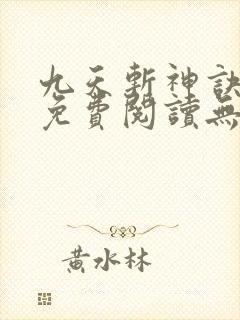 九天斬神訣
免費閱讀無
黃水林